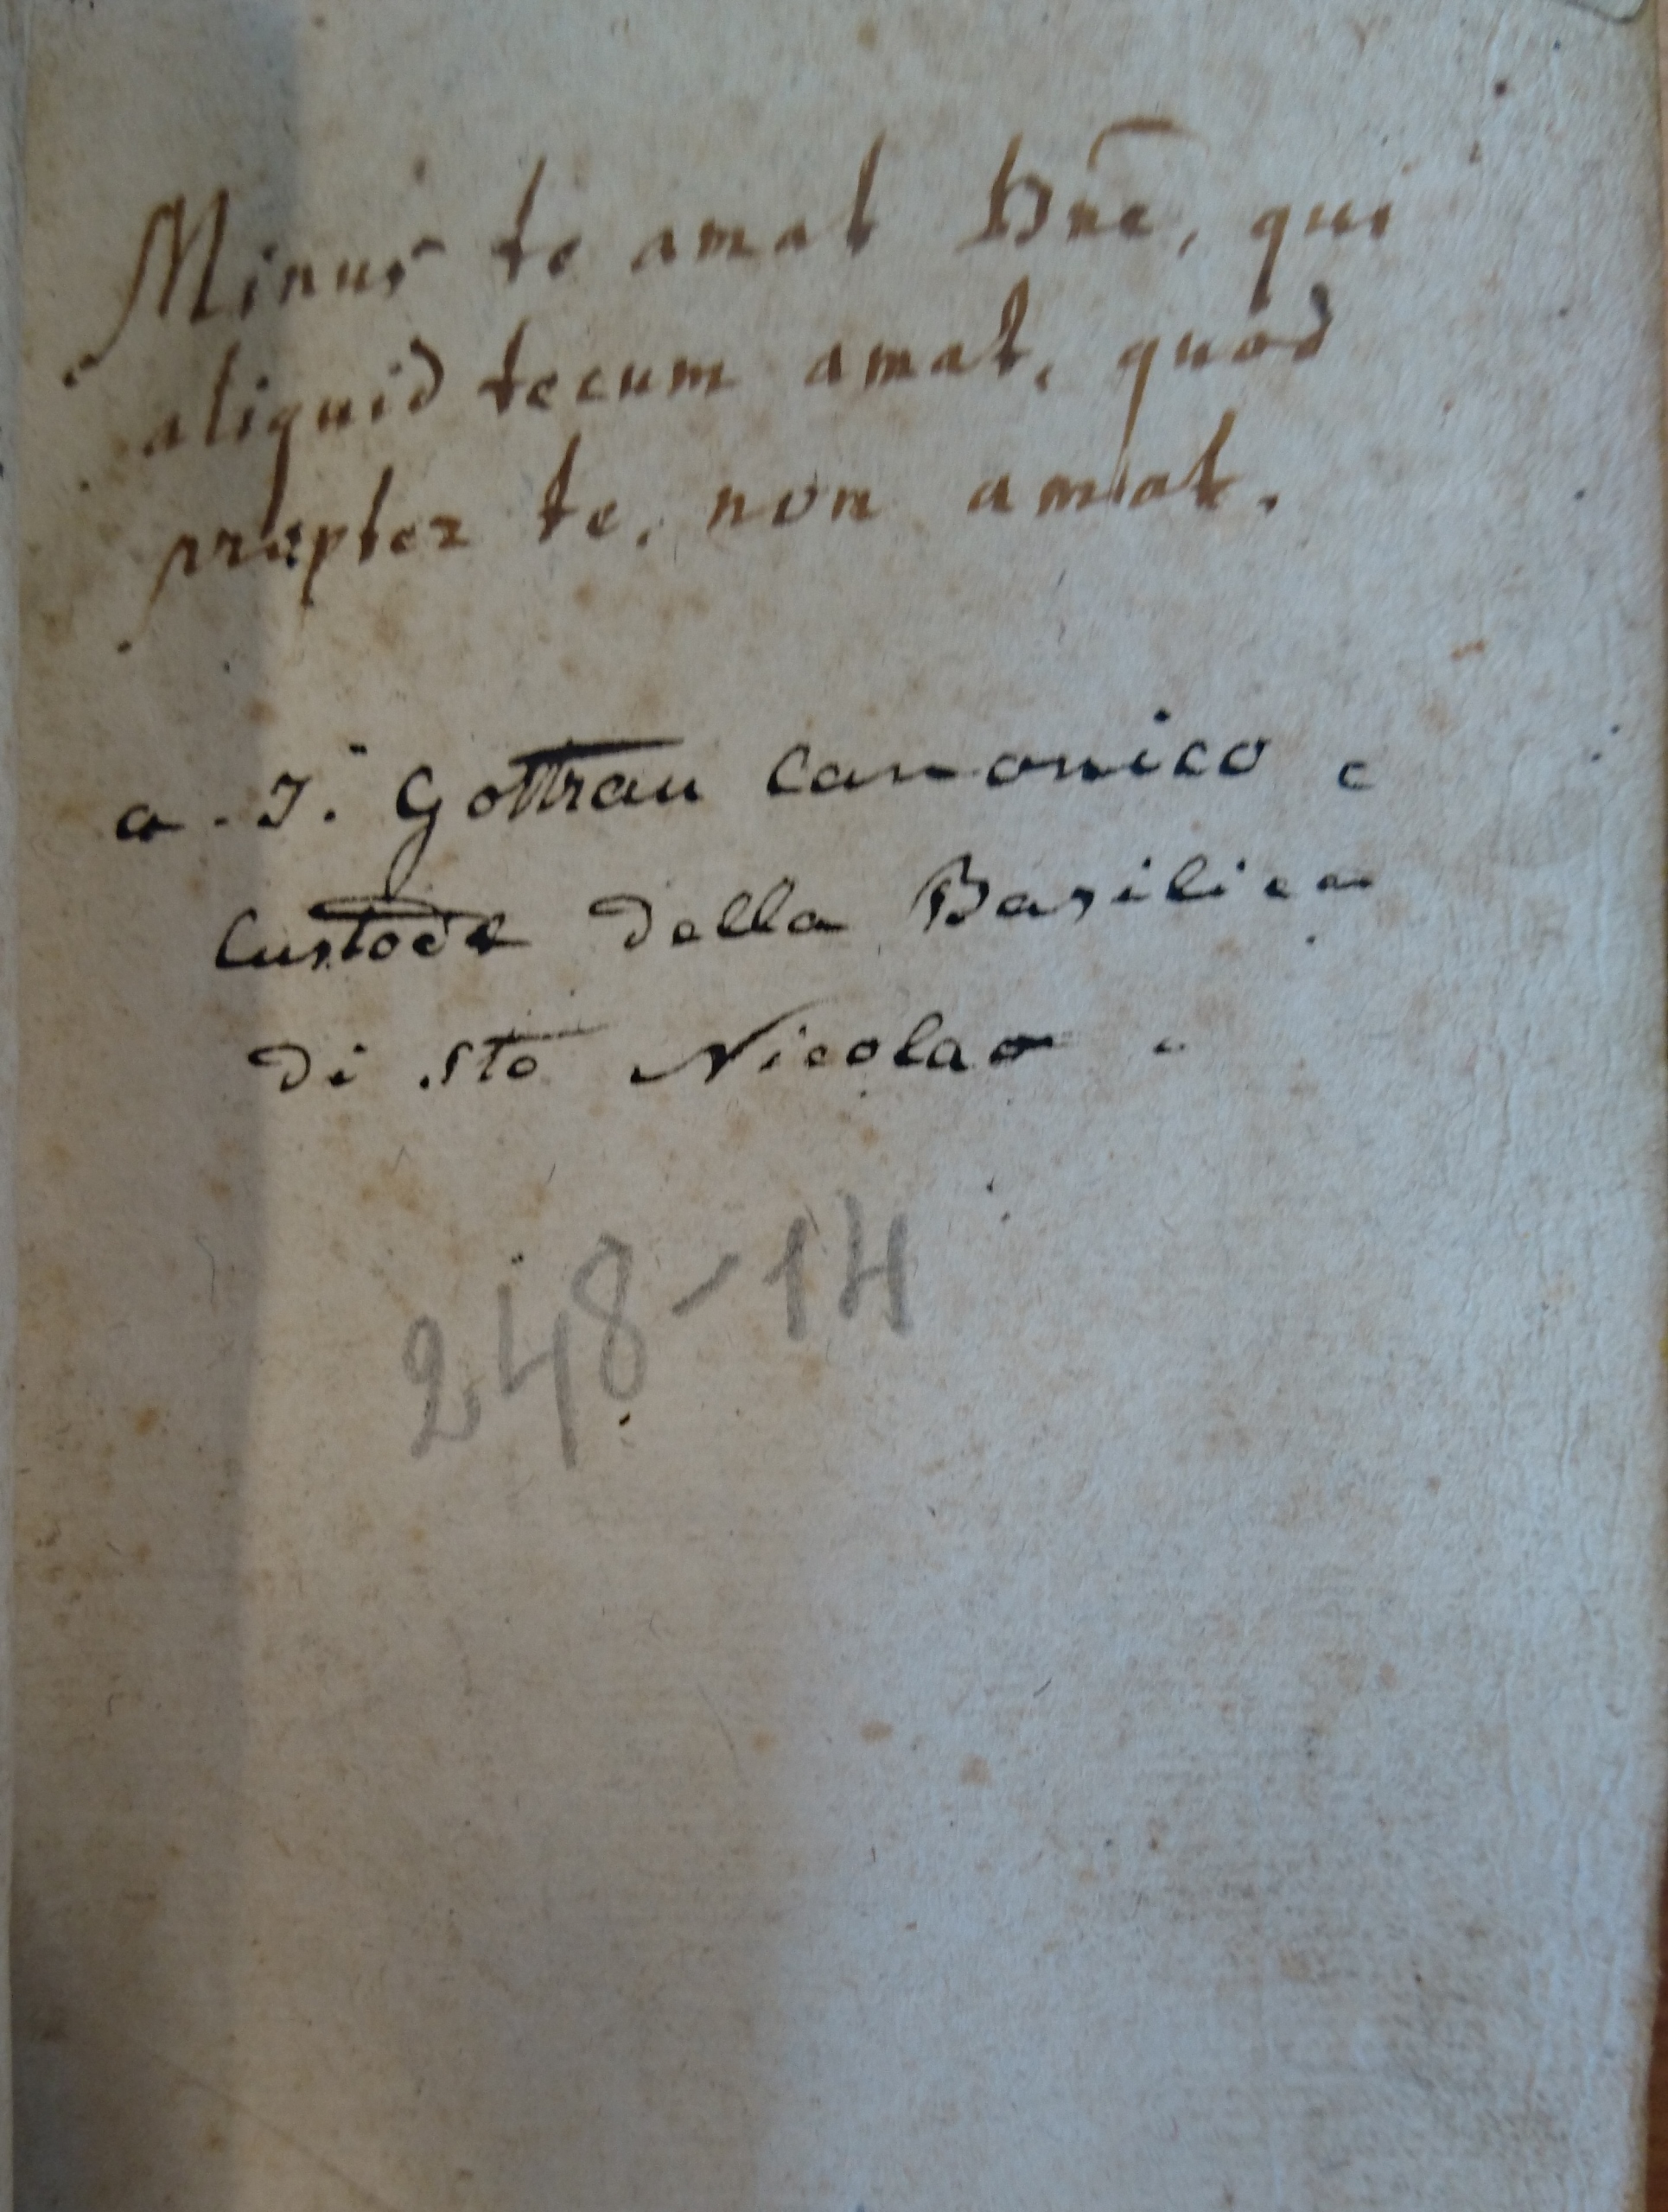 Minus te amat Dn̄e, qui
aliquid tecum amat, quod
propter te, non amat.
a. J. Gottrau Canonico e
Custode della Basilica
di Sto Nicolao.
248-14